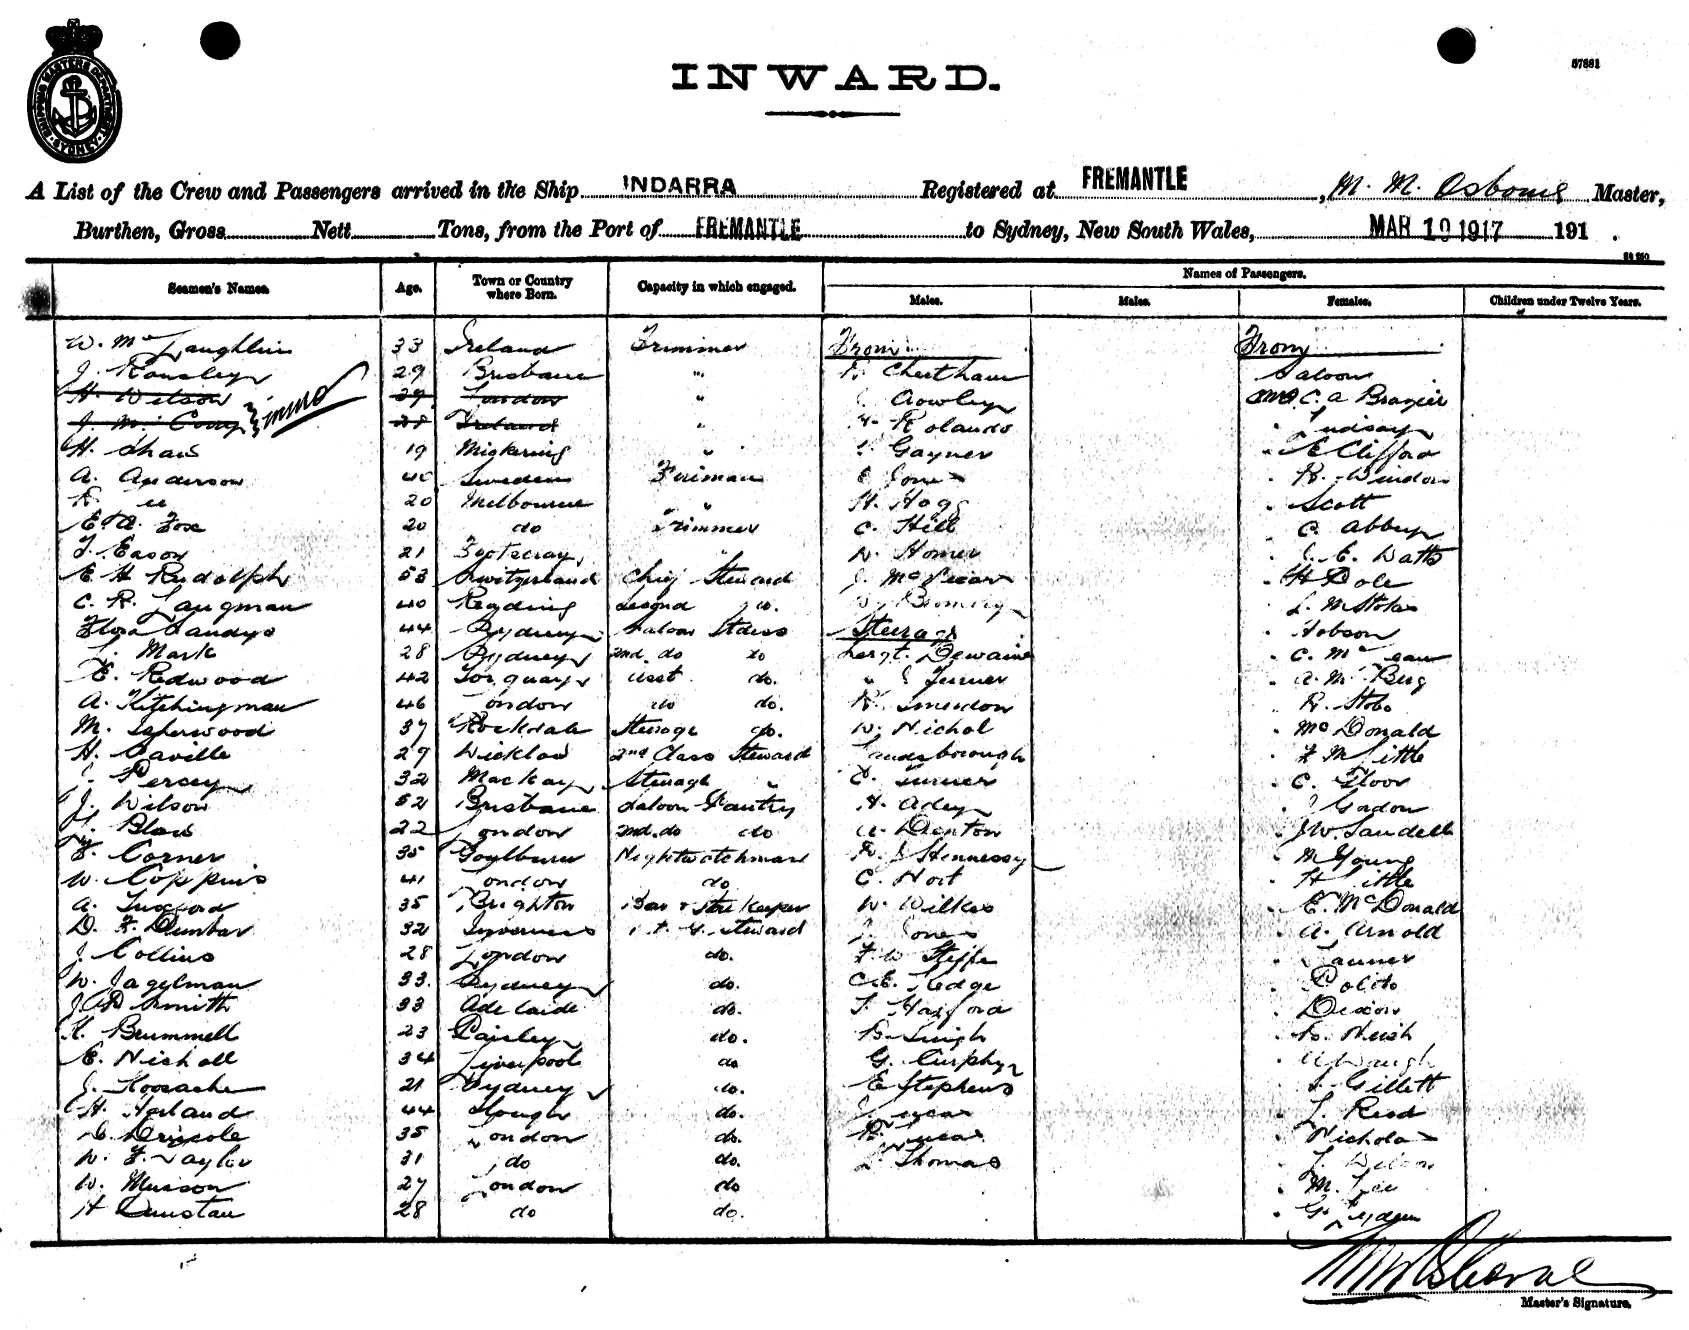 INWARD.
57881
SHIPPING MASTERS DEPARTMENT SYDNEY
A List of the Crew and Passengers arrived in the Ship INDARRA Registered at FREMANTLE, M. M. Osborne Master,
Burthen, Gross Nett Tons, from the Port of FREMANTLE to Sydney, New South Wales, MAR 10 1917 191 .
Seamen's Names. Age. Town or Country where Born. Capacity in which engaged. Names of Passengers.
Males. Males. Females. Children under Twelve Years.
W. McLaughlin 33 Ireland Trimmer From From
J. Ransley 29 Brisbane " Cheetham Saloon
H. Wilson 29 London " Crowley Mrs C. A Brazier
J. Mc 28 Ireland " Rolando " Lindsay
H. Shaw 19 " Gayner " E Clifford
A. Anderson 40 Sweden Fireman Jones " R.
R. Lee 20 Melbourne " H. Hogg " Scott
E. A. Fox 20 do Trimmer C. Hill " C. Abbey
T. Eason 21 Footscray W. Homer " J. E. Watts
E H Rudolph 53 Switzerland Chief Steward J. " H Dole
C. R. Langman 40 Reading Second do. " L. M Stokes
Sandys 44 Sydney Saloon Stdess Steerage " Hobson
L. Mark 28 Sydney 2nd. do do Sergt. Dewaine " C. McLean
E. Redwood 42 Torquay Asst. do. " J Turner " A. M Berg
A. Kitchingman 46 London do do. R. Smeddon " R. Stobo
M. Isherwood 37 Rockdale Steerage do. W. Nichol " McDonald
H. Saville 29 Wicklow 2nd Class Steward Landsborough " F. M Little
Percey 32 Mackay Steerage " Turner " C. Floor
J. Wilson 52 Brisbane Saloon Pantry H. Adey " J Gordon
Blair 22 London 2nd. do do A. Denton " J W Sandell
F. Corner 35 Goulburn Nightwatchman Hennessy " M Young
W. Coppins 41 London do C. Hort " H Little
A. Tuxford 35 Brighton Bar & Storekeeper W. Wilkes " E. McDonald
D. F. Dunbar 32 Inverness Steward Jones " A. Arnold
J. Collins 28 London do. F. W Steffe " Tanner
W. Jagelman 33. Sydney do. C. E. Hedge " Polito
J. Smith 33 Adelaide do. T. Harford " Dixon
Brummell 23 Paisley do. B. Singh " Neish
E. Nicholl 34 Liverpool do G. Curphey " Waugh
J. 21 Sydney do. E Stephens " S. Gillett
H. Harland 44 Slough do. J. Lucas " L. Reid
Driscole 35 London do. Lucas " Nicholas
W. F. Taylor 31 do do. Thomas " L. Wilson
W. Musson 27 London do " M. Lee
H Dunstan 28 do do. " G. Leyden
M M Osborne
Master's Signature.